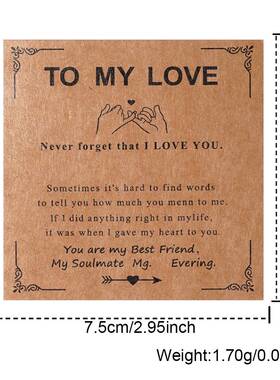 TO MY LOVE
Never forget that I LOVE YOU.
Sometimes it's hard to find words
to tell you how much you menn to me.
If I did anything right in mylife,
it was when I gave my heart to you.
You are my Best Friend,
My Soulmate Mg. Evering.
7.5cm/2.95inch
Weight:1.70g/0.0